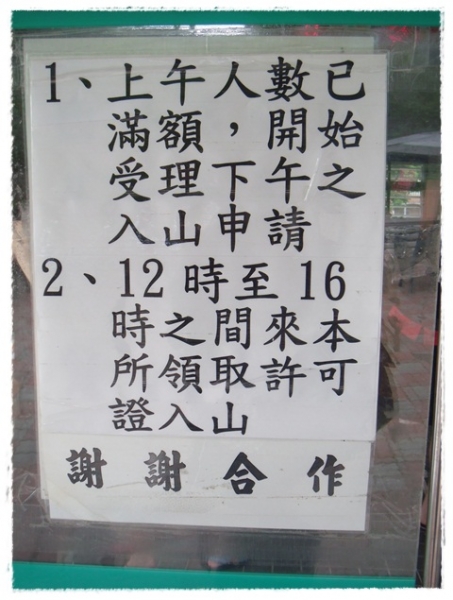 1、上午人數已
滿額，開始
受理下午之
入山申請
2、12時至16
時之間來本
所領取許可
證入山
謝謝合作